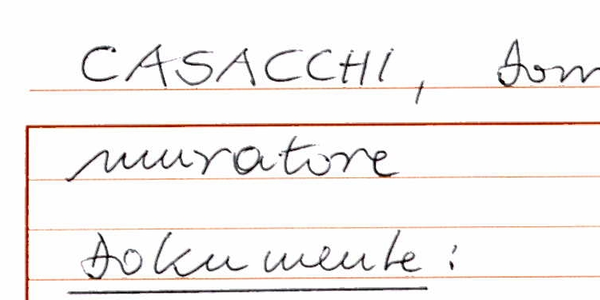 CASACCHI, Dom
muratore
Dokumente: